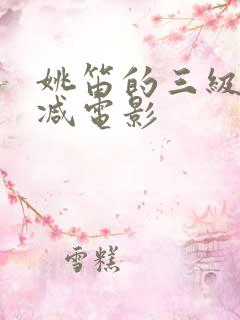 姚笛的三級
减電影
雪糕